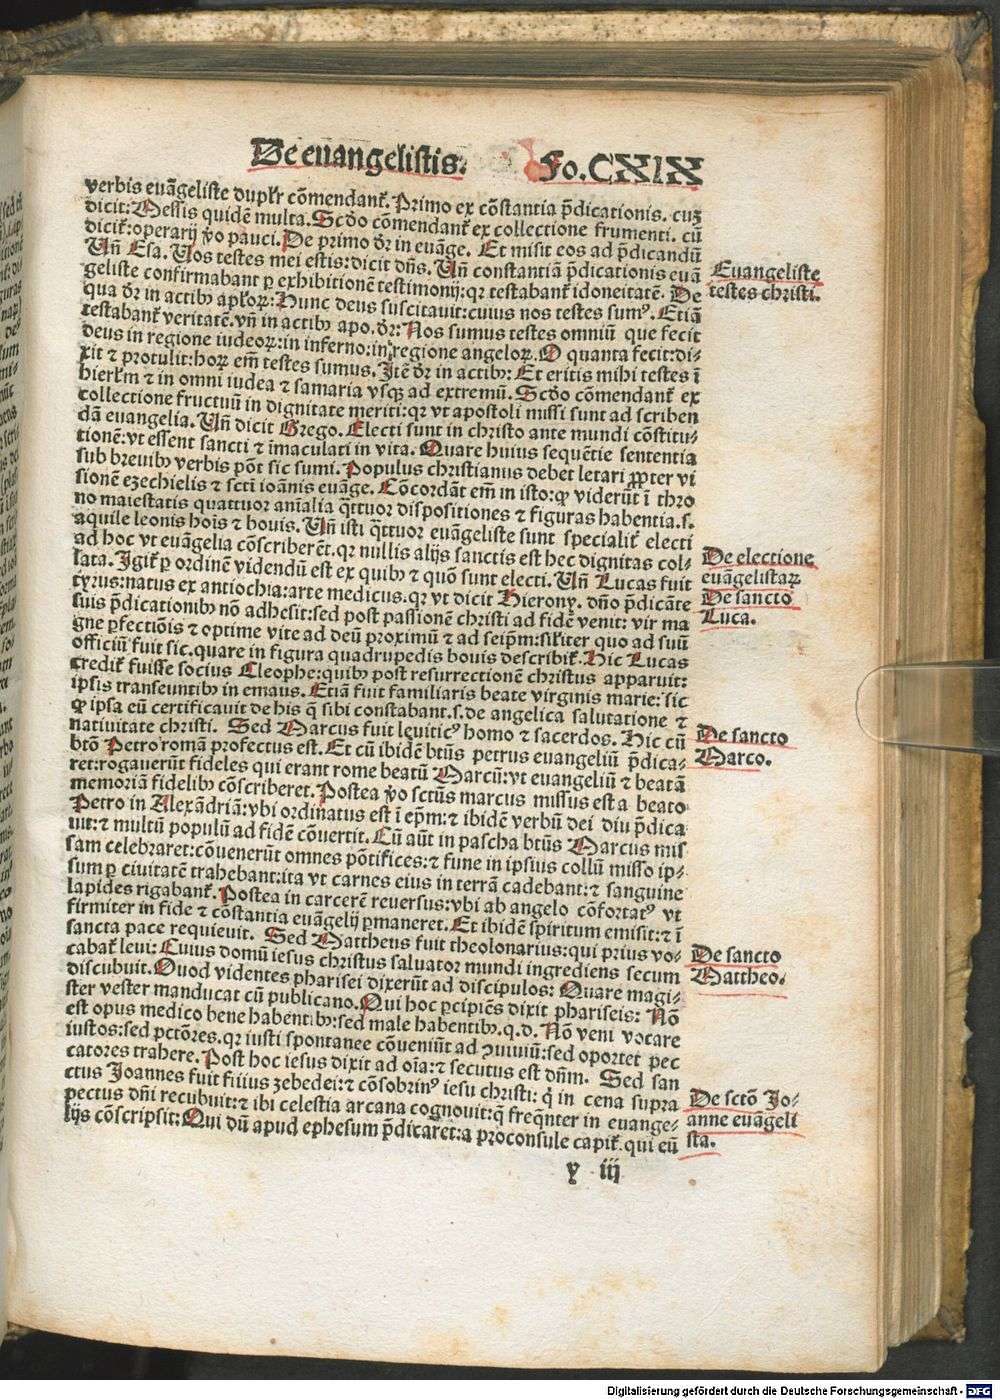 De euangelistis. Fo. CXIX
verbis euāgeliste duplr̄ cōmendant᷑. Primo ex cōstantia p̄dicationis. cuꝫ
dicit: Messis quidē multa. Scdo cōmendant᷑ ex collectione frumenti. cū
dicit᷑: operarij ꝟo pauci. De primo dr̄ in euāge. Et misit eos ad p̄dicandū
Vn̄ Esa. Vos testes mei estis: dicit dn̄s. Vn̄ constantiā p̄dicationis euā
geliste confirmabant ꝑ exhibitionē testimonij: qꝛ testabant᷑ idoneitatē. De
qua dr̄ in actibꝰ apl̄oꝝ: Hunc deus suscitauit: cuius nos testes sumꝰ. Etiā
testabant᷑ veritatē. vn̄ in actibꝰ apo. dr̄: Nos sumus testes omniū que fecit
deus in regione iudeoꝝ: in inferno: in regione angeloꝝ. O quanta fecit: di-
xit ⁊ protulit: hoꝝ em̄ testes sumus. Itē dr̄ in actibꝰ: Et eritis mihi testes ī
hierl̄m ⁊ in omni iudea ⁊ samaria vsqꝫ ad extremū. Scdo cōmendant᷑ ex
collectione fructuū in dignitate meriti: qꝛ vt apostoli missi sunt ad scriben
dā euangelia. Vn̄ dicit Grego. Electi sunt in christo ante mundi cōstitu-
tionē: vt essent sancti ⁊ īmaculati in vita. Quare huius sequētie sententia
sub breuibꝰ verbis pōt sic sumi. Populus christianus debet letari ꝓpter vi
sionē ezechielis ⁊ scti ioānis euāge. Cōcordāt em̄ in isto: ꝙ viderūt ī thro
no maiestatis quattuor aīalia q̄ttuor dispositiones ⁊ figuras habentia. s.
aquile leonis hoīs ⁊ bouis. Vn̄ isti q̄ttuor euāgeliste sunt specialit᷑ electi
ad hoc vt euāgelia cōscriberēt. qꝛ nullis alijs sanctis est hec dignitas col-
lata. Igit᷑ ꝑ ordinē videndū est ex quibꝰ ⁊ quō sunt electi. Vn̄ Lucas fuit
tyrus: natus ex antiochia: arte medicus. qꝛ vt dicit Hierony. dn̄o p̄dicāte
suis p̄dicationibꝰ nō adhesit: sed post passionē christi ad fidē venit: vir ma
gne ꝑfectiōis ⁊ optime vite ad deū proximū ⁊ ad seip̄m: sil̄iter quo ad suū
officiū fuit sic. quare in figura quadrupedis bouis describit᷑. Hic Lucas
credit᷑ fuisse socius Cleophe: quibꝰ post resurrectionē christus apparuit:
ipsis transeuntibꝰ in emaus. Etiā fuit familiaris beate virginis marie: sic
ꝙ ipsa eū certificauit de his q̄ sibi constabant. s. de angelica salutatione ⁊
natiuitate christi. Sed Marcus fuit leuiticꝰ homo ⁊ sacerdos. Hic cū
btō Petro romā profectus est. Et cū ibidē btūs petrus euangeliū p̄dica-
ret: rogauerūt fideles qui erant rome beatū Marcū: vt euangeliū ⁊ beatā
memoriā fidelibꝰ cōscriberet. Postea ꝟo sctūs marcus missus est a beato
Petro in Alexādriā: vbi ordinatus est ī ep̄m: ⁊ ibidē verbū dei diu p̄dica
uit: ⁊ multū populū ad fidē cōuertit. Cū aūt in pascha btūs Marcus mis
sam celebraret: cōuenerūt omnes pōtifices: ⁊ fune in ipsius collū misso ip-
sum ꝑ ciuitatē trahebant: ita vt carnes eius in terrā cadebant: ⁊ sanguine
lapides rigabant᷑. Postea in carcerē reuersus: vbi ab angelo cōfortatꝰ vt
firmiter in fide ⁊ cōstantia euāgelij ꝑmaneret. Et ibidē spiritum emisit: ⁊ ī
sancta pace requieuit. Sed Mattheus fuit theolonarius: qui prius vo-
cabat᷑ leui: Cuius domū iesus christus saluator mundi ingrediens secum
discubuit. Quod videntes pharisei dixerūt ad discipulos: Quare magi-
ster vester manducat cū publicano. Qui hoc ꝑcipiēs dixit phariseis: Nō
est opus medico bene habentibꝰ: sed male habentibꝰ. q. d. Nō veni vocare
iustos: sed pctōres. qꝛ iusti spontanee cōueniūt ad ꝯuiuiū: sed oportet pec
catores trahere. Post hoc iesus dixit ad oīa: ⁊ secutus est dn̄m. Sed san
ctus Joannes fuit filius zebedei: ⁊ cōsobrinꝰ iesu christi: q̇ in cena supra
pectus dn̄i recubuit: ⁊ ibi celestia arcana cognouit: q̄ freq̄nter in euange-
lijs cōscripsit: Qui dū apud ephesum p̄dicaret: a proconsule capit᷑. qui eū
y iij
Euangeliste
testes christi.
De electione
euāgelistaꝝ
De sancto
Luca.
De sancto
Marco.
De sancto
Mattheo.
De sctō Jo-
anne euāgeli
sta.
Digitalisierung gefördert durch die Deutsche Forschungsgemeinschaft - DFG